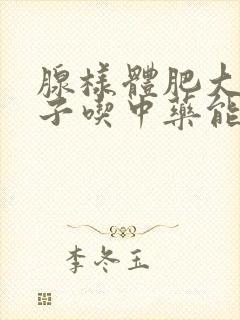 腺樣體肥大
子喫中藥能
李冬玉